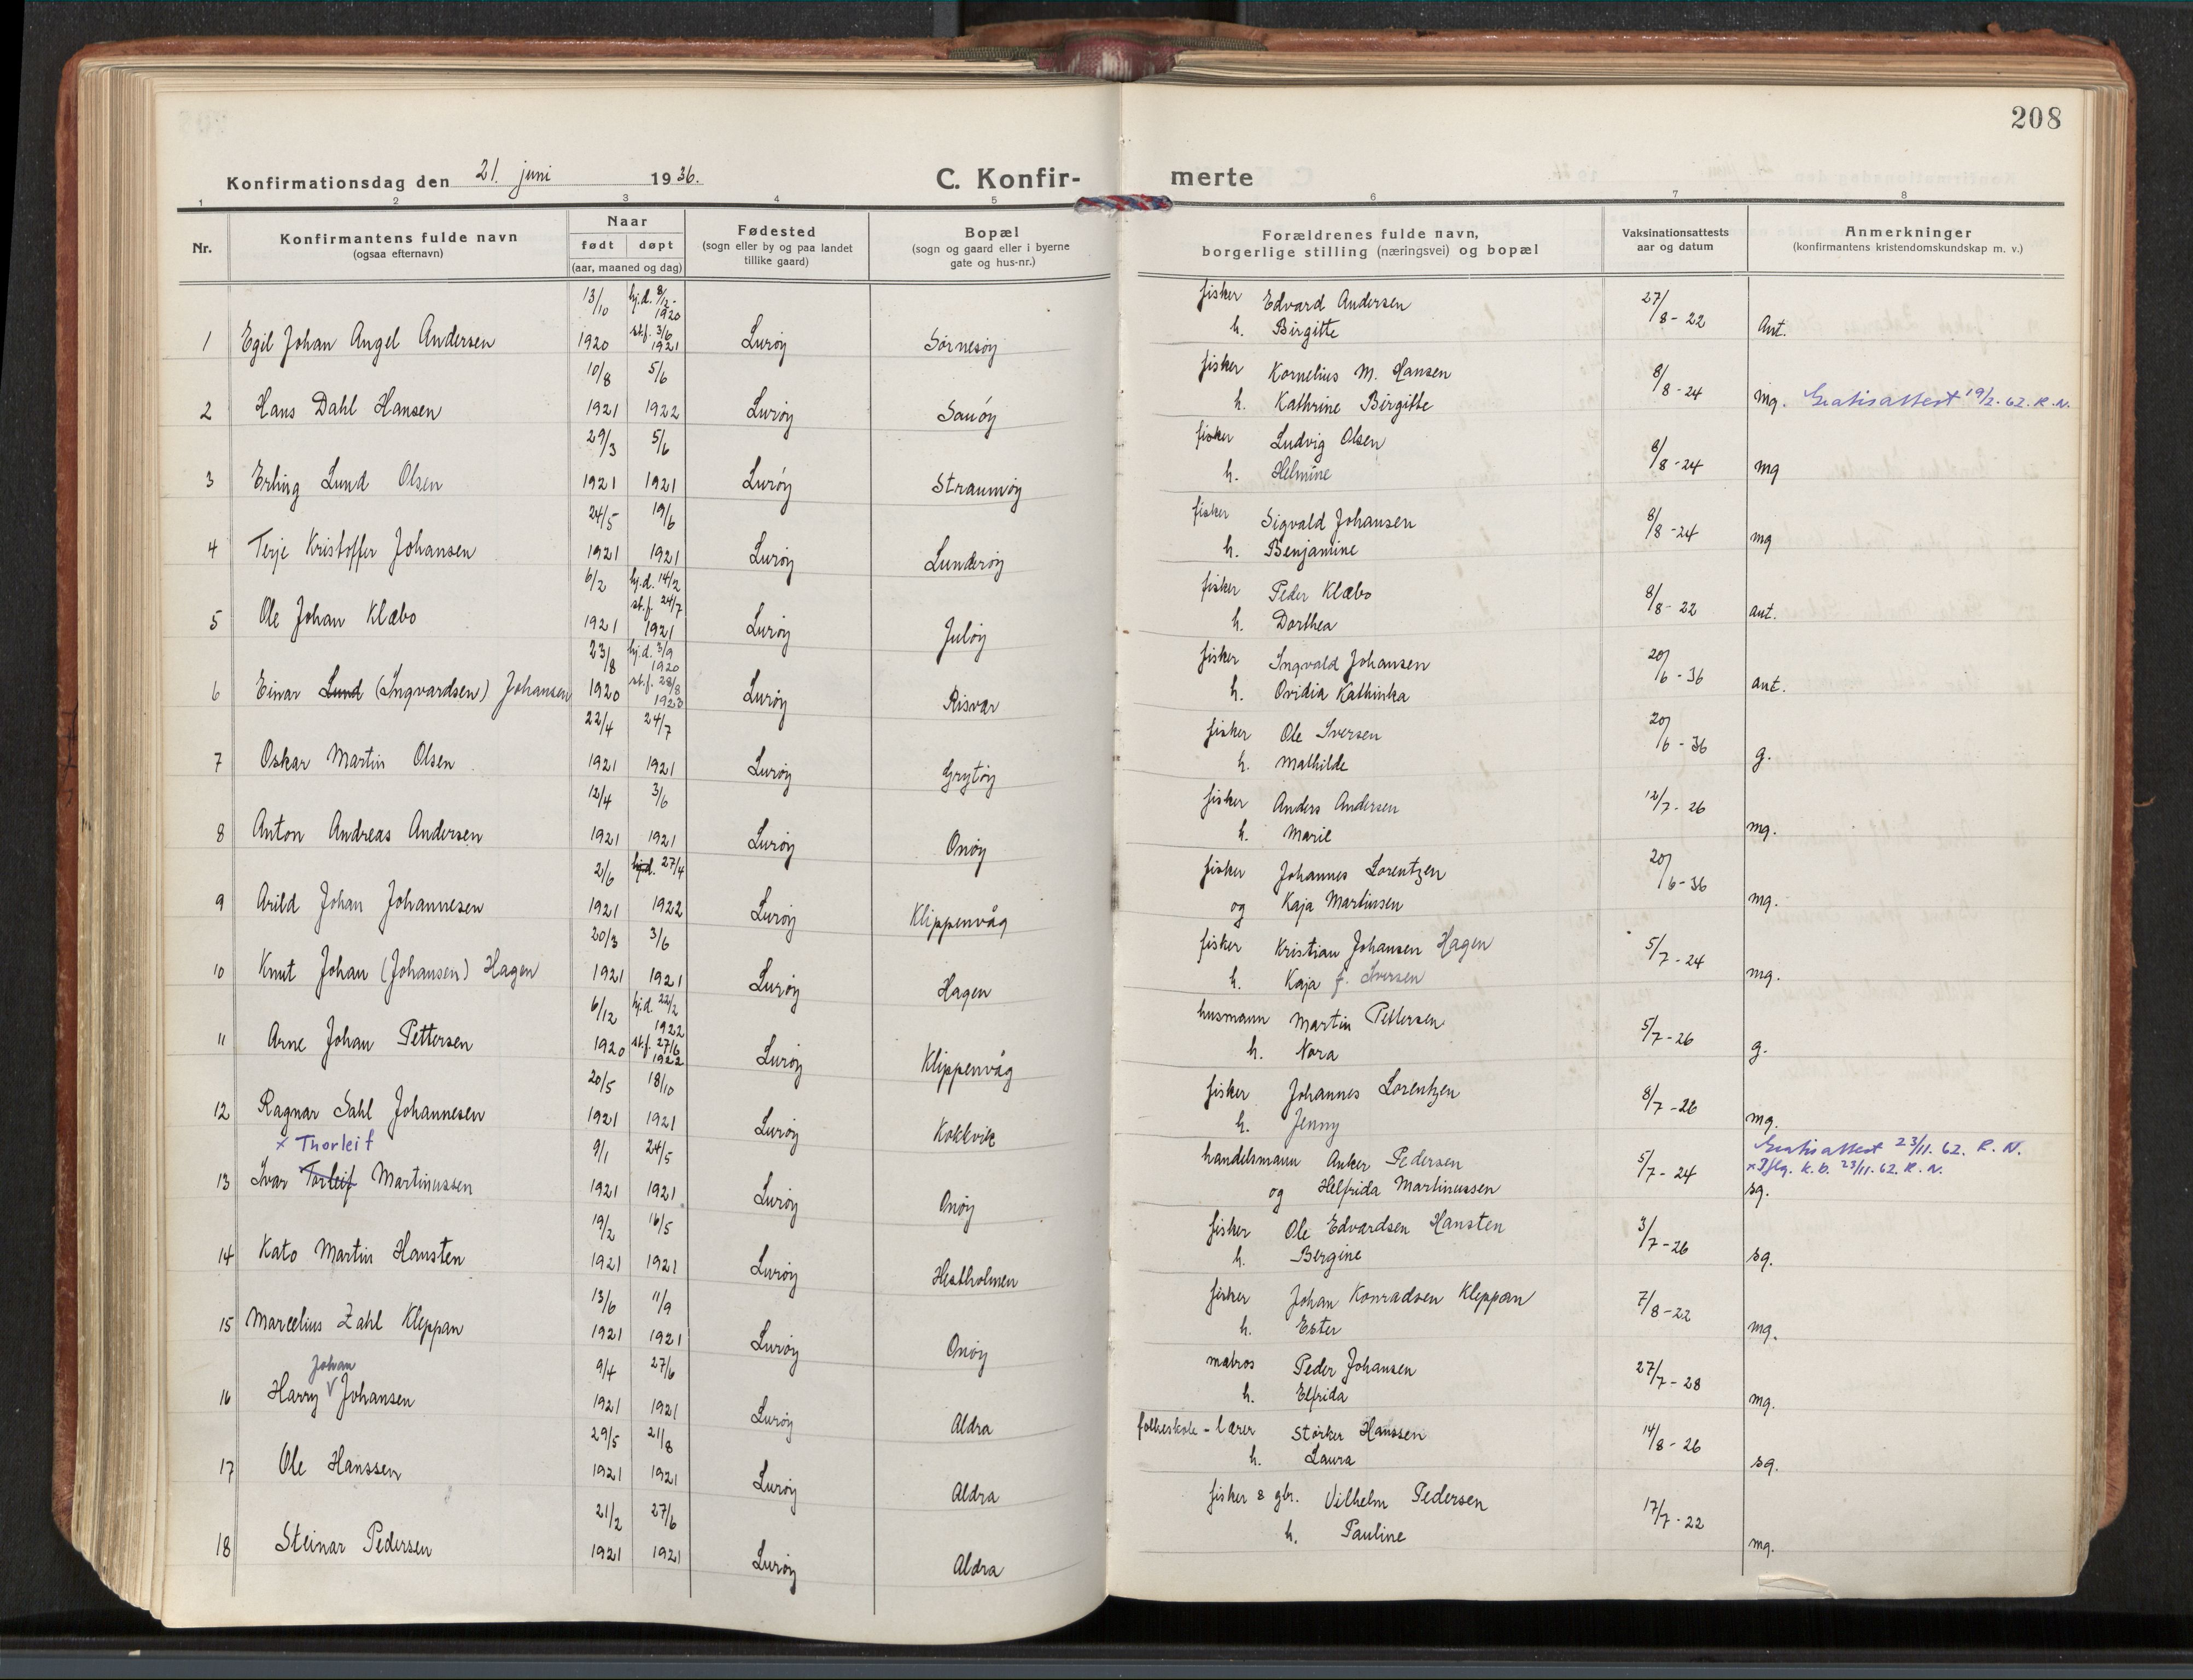 208
Konfirmationsdag den 21. juni 1936. C. Konfir- merte
1 2 3 4 5 6 7 8
Nr. Konfirmantens fulde navn (ogsaa efternavn) Naar født døpt (aar, maaned og dag) Fødested (sogn eller by og paa landet tillike gaard) Bopæl (sogn og gaard eller i byerne gate og hus-nr.) Forældrenes fulde navn, borgerlige stilling (næringsvei) og bopæl Vaksinationsattests aar og datum Anmerkninger (konfirmantens kristendomskundskap m. v.)
13/10 hj.d. 8/12- 1920 fisker Edvard Andersen 27/8-22
1 Egil Johan Angel Andersen 1920 st.f. 3/6 1921 Lurøy Sørnesøy h. Birgitte Ant.
10/8 5/6 fisker Kornelius M. Hansen 8/8-24
2 Hans Dahl Hansen 1921 1922 Lurøy Sanøy h. Kathrine Birgitte mg. Gratisattest 19/2.62. R.N.
29/3 5/6 fisker Ludvig Olsen 8/8-24
3 Erling Lund Olsen 1921 1921 Lurøy Straumøy h. Helmine mg
24/5 19/6 fisker Sigvald Johansen 8/8-24
4 Terje Kristoffer Johansen 1921 1921 Lurøy Lunderøy h. Benjamine mg
6/2 hj.d. 14/2 st.f. 24/7 fisker Peder Klæbo 8/8-22
5 Ole Johan Klæbo 1921 1921 Lurøy Juløy h. Dorthea ant.
23/8 hj.d. 3/9 1920 fisker Ingvald Johansen 20/6-36
6 Einar Lund (Ingvardsen) Johansen 1920 st.f. 28/8 1923 Lurøy Risvær h. Ovidia Kathinka ant.
22/4 24/7 fisker Ole Iversen 20/6-36
7 Oskar Martin Olsen 1921 1921 Lurøy Grytøy h. Mathilde g.
12/4 3/6 fisker Anders Andersen 12/7-26
8 Anton Andreas Andersen 1921 1921 Lurøy Onøy h. Marie mg.
2/6 hj.d. 27/4 fisker Johannes Lorentzen 20/6-36
9 Arild Johan Johannesen 1921 1922 Lurøy Klippenvåg og Kaja Martinsen mg.
20/3 3/6 fisker Kristian Johansen Hagen 5/7-24
10 Knut Johan (Johansen) Hagen 1921 1921 Lurøy Hagen h. Kaja f. Iversen mg.
6/12 hj.d. 22/2 1922 husmann Martin Pettersen 5/7-26
11 Arne Johan Pettersen 1920 st.f. 27/6 1922 Lurøy Klippenvåg h. Nora g.
20/5 18/10 fisker Johannes Lorentzen 8/7-26
12 Ragnar Dahl Johannesen 1921 1921 Lurøy Kokkvik h. Jenny mg.
x Thorleif 9/1 24/5 handelsmann Anker Pedersen 5/7-24 Gratisattest 23/11.62. R.N.
13 Ivar Torleif Martinussen 1921 1921 Lurøy Onøy og Helfrida Martinussen x Iflg. k.b. 23/11.62. R.N. sg.
19/2 16/5 fisker Ole Edvardsen Hansten 3/7-26
14 Kato Martin Hansten 1921 1921 Lurøy Hestholmen h. Bergine sg.
13/6 11/9 fisker Johan Konradsen Kleppan 7/8-22
15 Marcelius Zahl Kleppan 1921 1921 Lurøy Onøy h. Ester mg.
Johan 9/4 27/6 matros Peder Johansen 27/7-28
16 Harry V Johansen 1921 1921 Lurøy Aldra h. Elfrida mg.
29/5 21/8 folkeskole-lærer Størker Hanssen 14/8-26
17 Ole Hanssen 1921 1921 Lurøy Aldra h. Laura sg.
21/2 27/6 fisker & gbr. Vilhelm Pedersen 17/7-22
18 Steinar Pedersen 1921 1921 Lurøy Aldra h. Pauline mg.